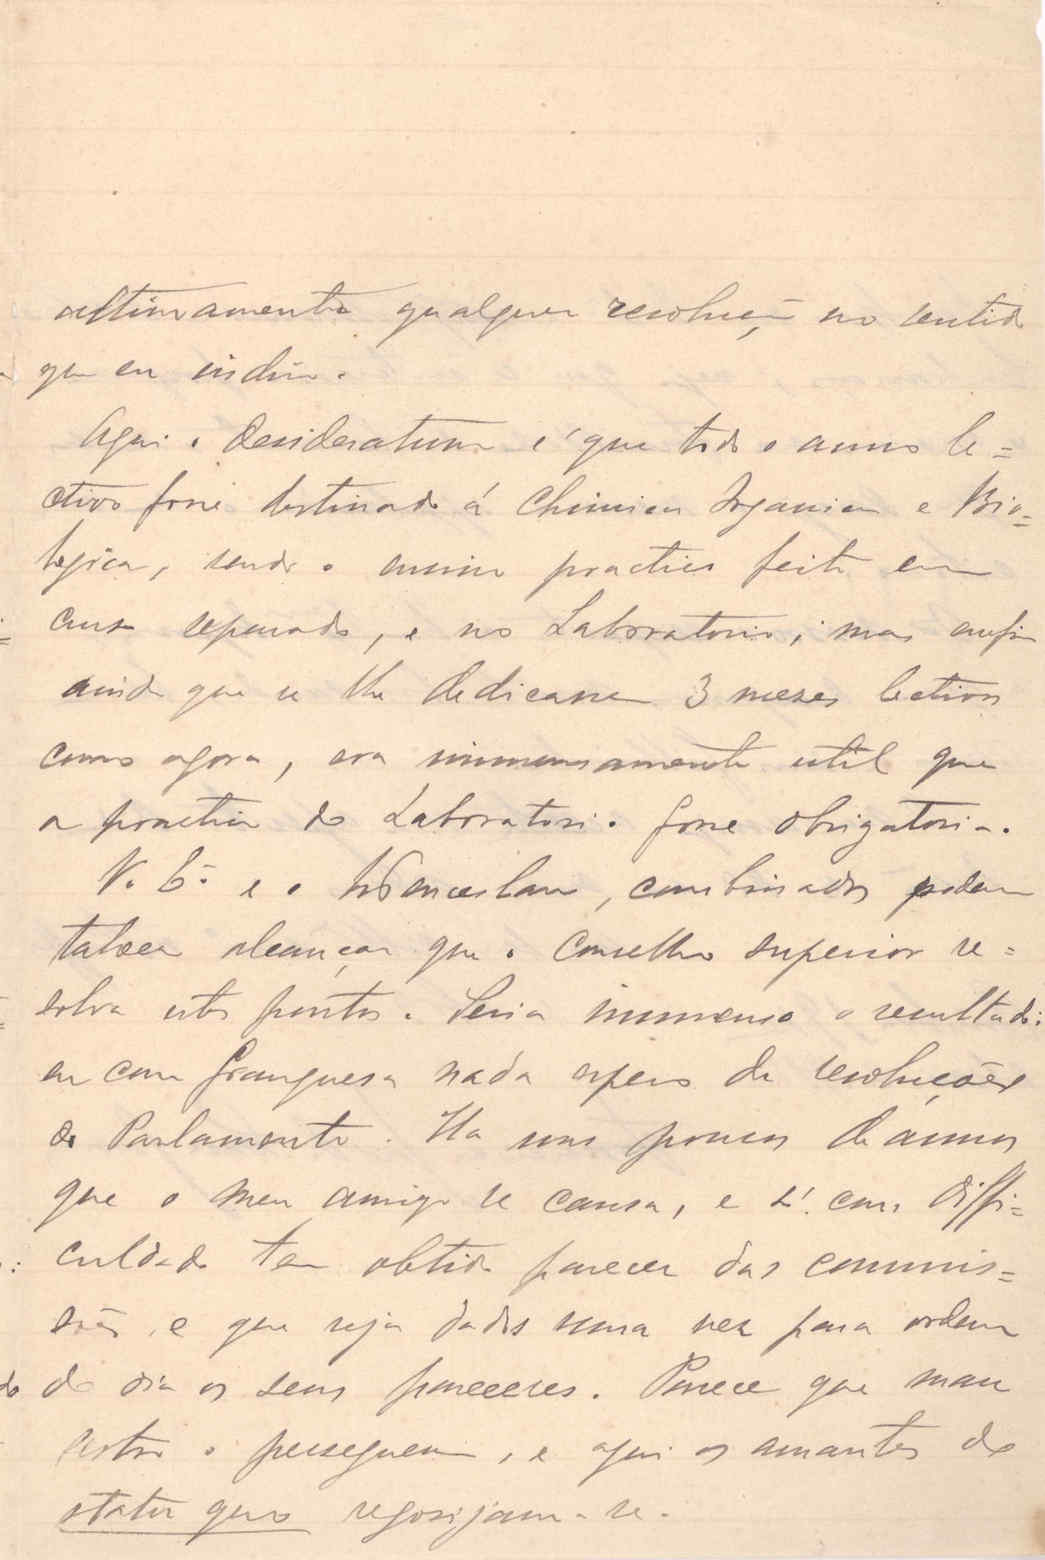 ultimamente qualquer resolução no sentido
que eu indico.
Aqui o desideratum é que todo o anno le=
ctivo fosse destinado á Chimica Organica e Bio=
logica, sendo o ensino practico feito em
curso separado, e no Laboratorio; mas enfim
ainda que se lhe dedicassem 3 mezes lectivos
como agora, era immensamente util que
a practica do Laboratorio fosse obrigatoria.
V. Ex.ª e o Wenceslau, combinados podem
talvez alcançar que o Conselho superior re=
solva estes pontos. Seria immenso o resultado:
eu com franquesa nada espero de resoluções
do Parlamento. Ha uns poucos de annos
que o meu amigo se cansa, e só com diffi=
culdade tem obtido parecer das commis=
sões, e que seja dados uma vez para ordem
do dia os seus pareceres. Parece que mau
astro o perseguem, e aqui os amantes do
statu quo regosijam-se.